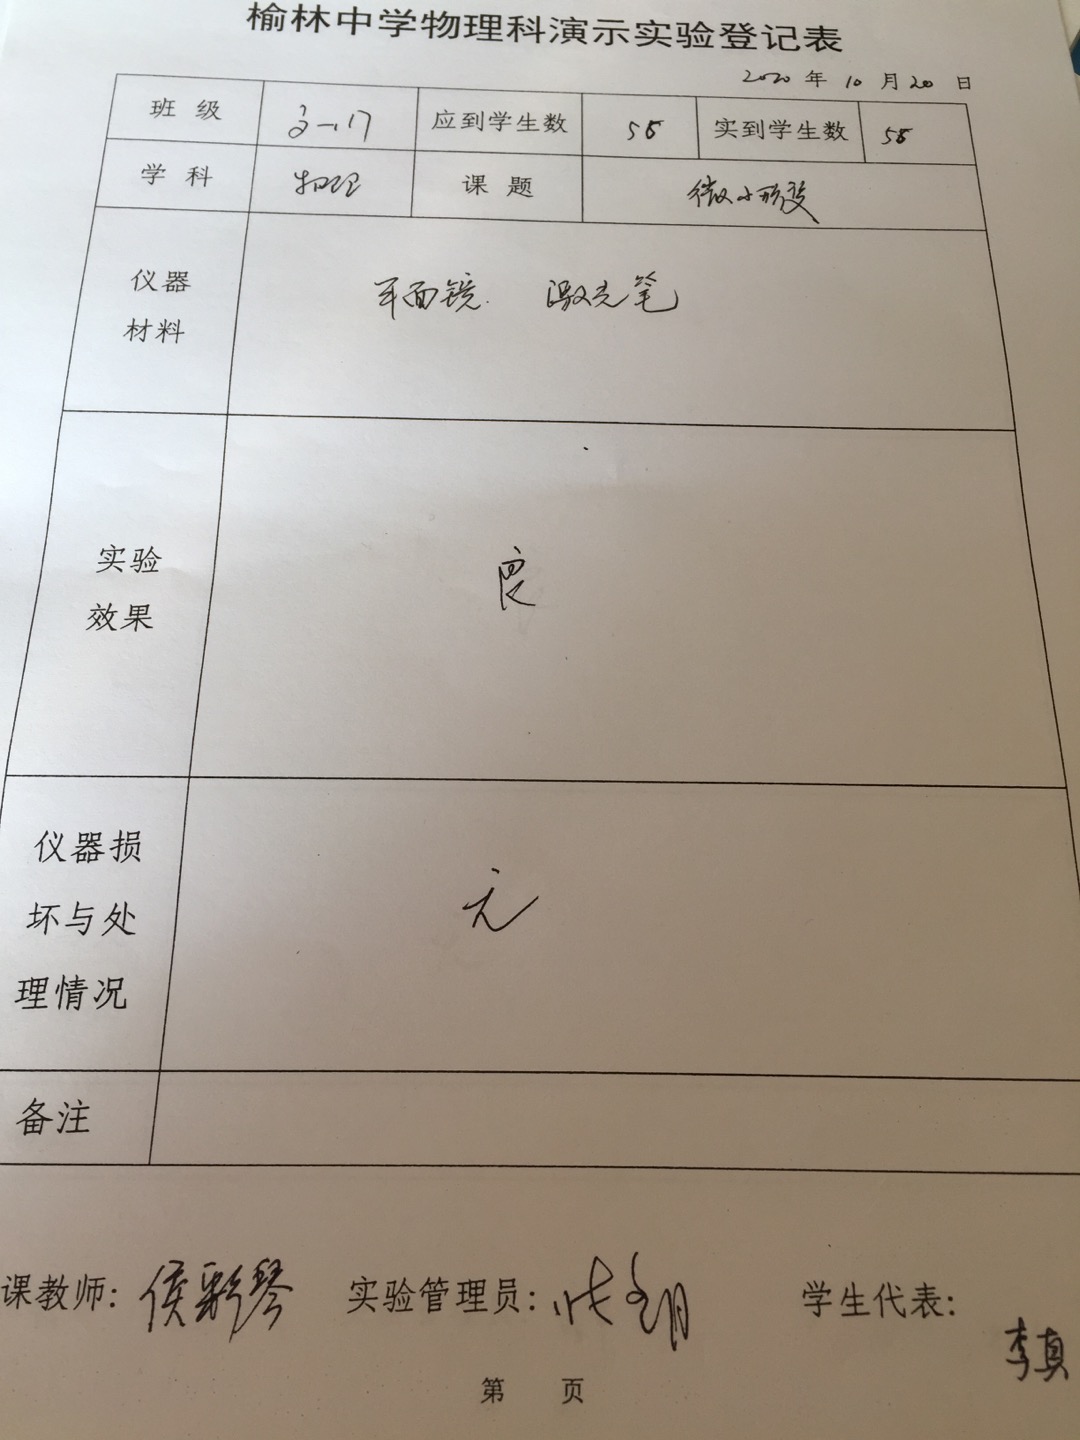 榆林中学物理科演示实验登记表
2020 年 10 月 20 日
班 级 高一.17 应到学生数 58 实到学生数 58
学 科 物理 课 题 微小形变
仪器 平面镜. 激光笔
材料
实验 良
效果
仪器损 无
坏与处
理情况
备注
课教师: 侯彩琴 实验管理员: 学生代表:
李真
第 页